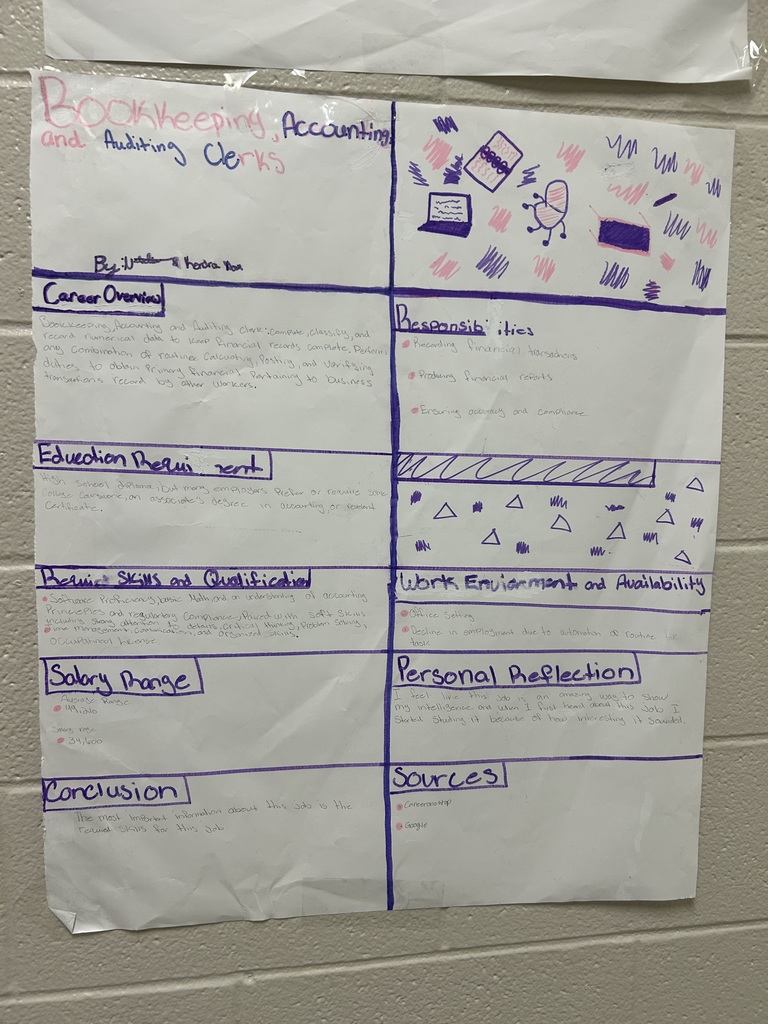 Bookkeeping, Accounting,
and Auditing Clerks
By: Kendra
Career Overview
Bookkeeping, Accounting and Auditing Clerk: compute, classify, and
record numerical data to keep financial records complete. Perform
any combination of routine calculating, Posting, and verifying
duties to obtain Primary financial Pertaining to business
transactions record by other workers.
Responsib ities
Recording financial transactions
Producing financial reports
Ensuring accuracy and compliance
Education Requi ment
High school diploma, but many employers Prefer or require some
College Coursework, an associate's degree in accounting, or
Certificate.
Skills and Qualification
Software Proficiency, basic Math, and an understanding of accounting
Principles and regulatory Compliance, Paired with Soft Skills
including strong attention to details, critical thinking, Problem Solving,
time management, Communication, and organized Skills.
Work Enviornment and Availability
Office Setting
Decline in employment due to automation of routine
task
Salary Range
Average Range
49,210
34,600
Personal Reflection
I feel like this job is an amazing way to show
my intelligence and when I first heard about this Job I
Started Studing it because of how interesting it sounded.
Conclusion
The most important information about this job is the
required skills for this Job
Sources
Careeronestop
Google